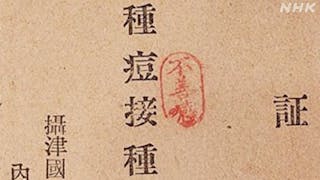 NHK
証
不善感
種痘接種
攝津國
内